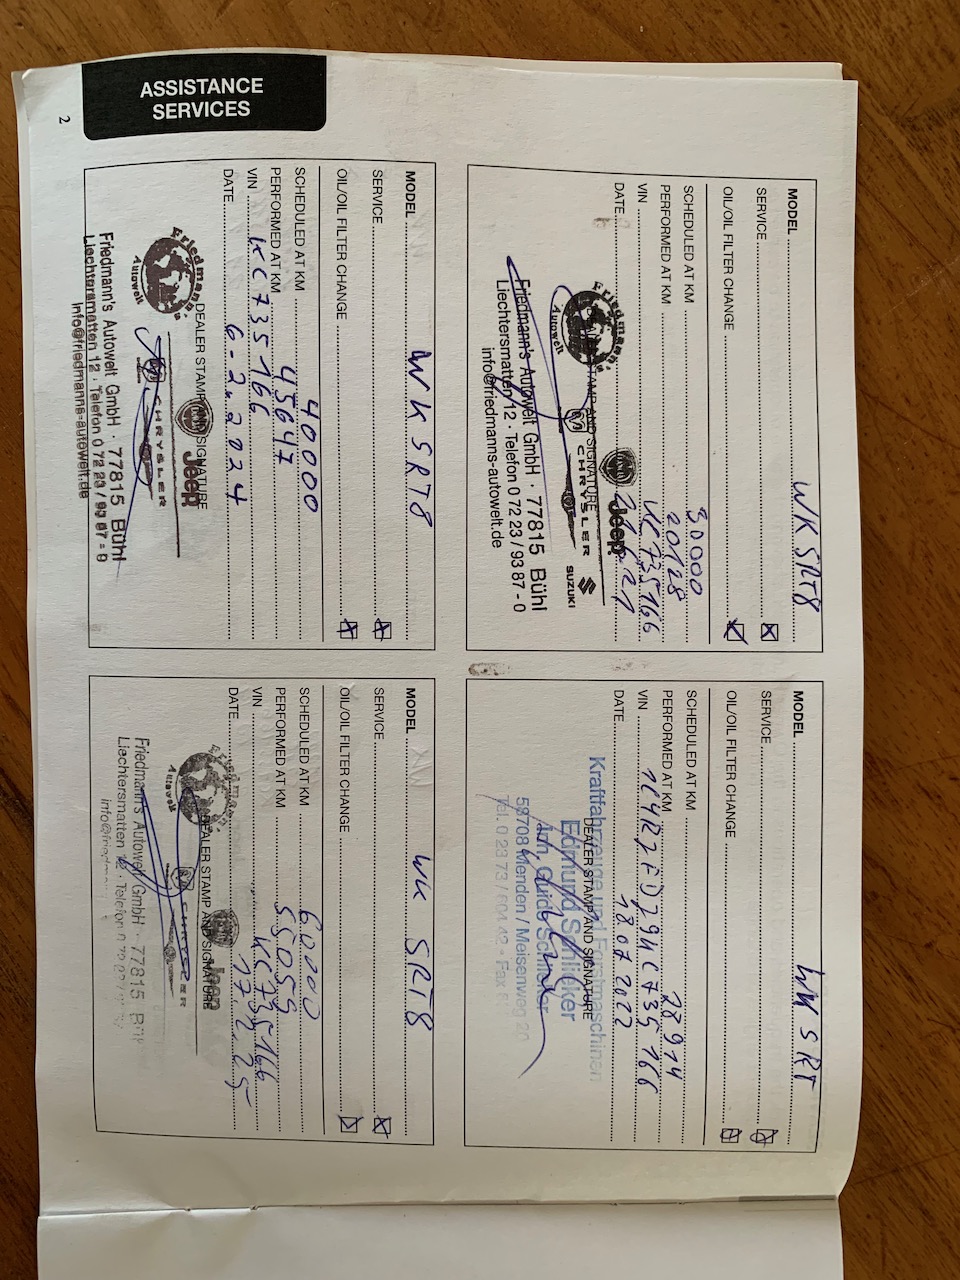 MODEL WK SRT8
SERVICE
OIL/OIL FILTER CHANGE
SCHEDULED AT KM 30000
PERFORMED AT KM 20128
VIN KC735166
DATE
DEALER STAMP AND SIGNATURE
Friedmann's
Autowelt
Jeep
CHRYSLER
SUZUKI
Friedmann's Autowelt GmbH · 77815 Bühl
Liechtersmatten 12 · Telefon 0 72 23 / 93 87 - 0
info@friedmanns-autowelt.de
MODEL WK SRT
SERVICE
OIL/OIL FILTER CHANGE
SCHEDULED AT KM
PERFORMED AT KM 28914
VIN 1C4RJFDJ29KC735166
DATE 18.07.2022
DEALER STAMP AND SIGNATURE
Kraftfahrzeuge und Forstmaschinen
Edmund Schlieker
Inh. Guido Schlieker
58708 Menden / Meisenweg 20
Tel. 0 23 73 / 6 04 42 • Fax
MODEL WK SRT8
SERVICE
OIL/OIL FILTER CHANGE
SCHEDULED AT KM 40000
PERFORMED AT KM 45647
VIN KC735166
DATE 6-2.2024
DEALER STAMP AND SIGNATURE
Friedmann's
Autowelt
Jeep
CHRYSLER
Friedmann's Autowelt GmbH · 77815 Bühl
Liechtersmatten 12 · Telefon 0 72 23 / 93 87 - 0
info@friedmanns-autowelt.de
MODEL WK SRT8
SERVICE
OIL/OIL FILTER CHANGE
SCHEDULED AT KM 60000
PERFORMED AT KM 55059
VIN KC735166
DATE 17.2.25
DEALER STAMP AND SIGNATURE
Friedmann's
Autowelt
Jeep
CHRYSLER
Friedmann's Autowelt GmbH · 77815
Liechtersmatten 12 · Telefon 0 72 23
info@
2
ASSISTANCE
SERVICES